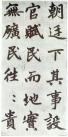 朝廷下其事設
官賦民而地實
無礦民往責